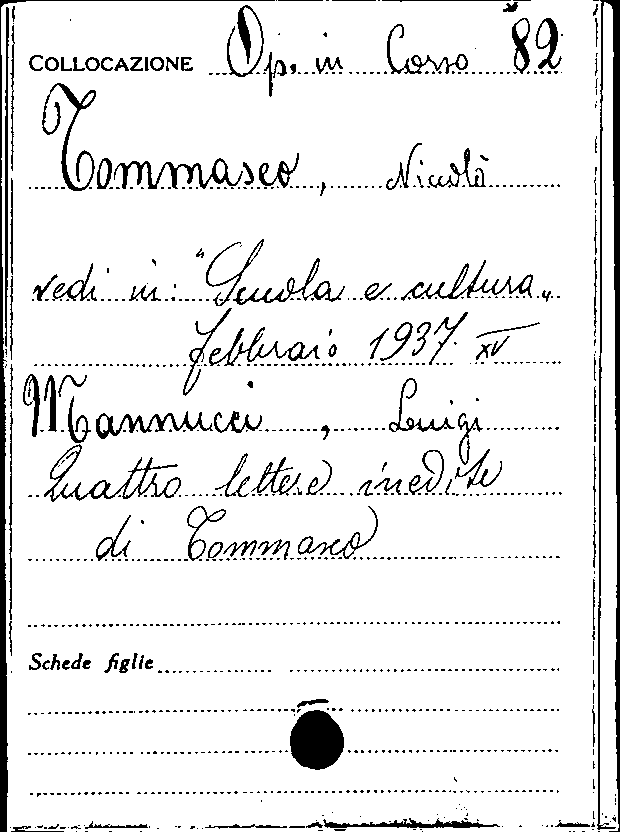 COLLOCAZIONE Op. in Corso 82
Tommaseo, Niccolò
vedi in: "Scuola e cultura„
febbraio 1937. XV
Mannucci, Luigi
Quattro lettere inedite
di Tommaseo
Schede figlie